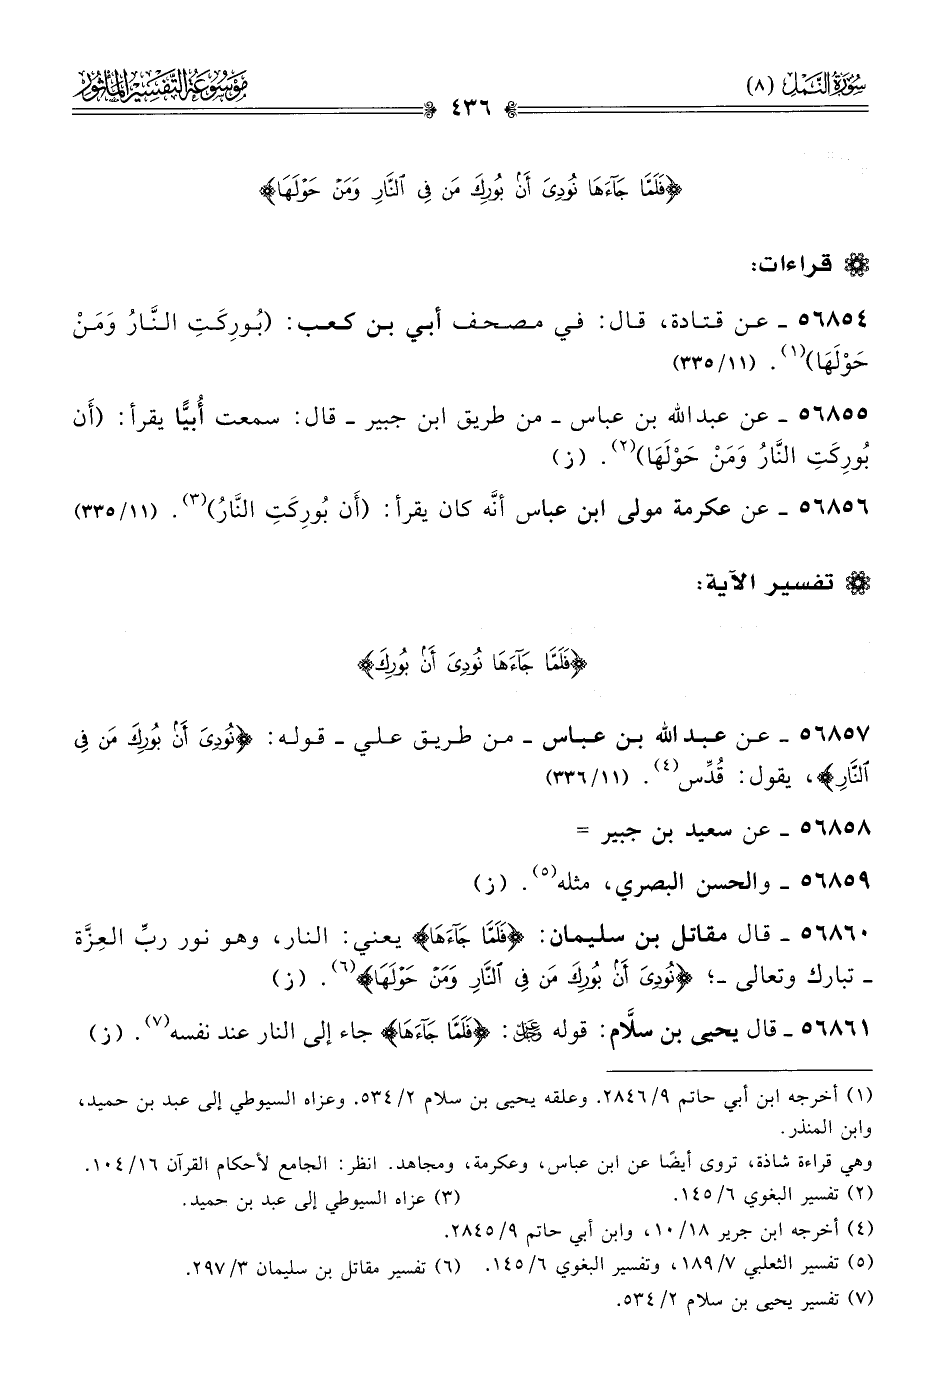 سُورَةُ النَّمْلِ (٨)
٤٣٦
مَوْسُوعَةُ التَّفْسِيرِ المَأْثُورِ
﴿فَلَمَّا جَآءَهَا نُودِىَ أَنۢ بُورِكَ مَن فِى ٱلنَّارِ وَمَنْ حَوْلَهَا﴾
قراءات:
٥٦٨٥٤ ـ عن قتادة، قال: في مصحف أبي بن كعب: (بُورِكَتِ النَّارُ وَمَنْ
حَوْلَهَا)(١). (١١/ ٣٣٥)
٥٦٨٥٥ ـ عن عبدالله بن عباس ـ من طريق ابن جبير ـ قال: سمعت أُبيًّا يقرأ: (أَن
بُورِكَتِ النَّارُ وَمَنْ حَوْلَهَا)(٢). (ز)
٥٦٨٥٦ ـ عن عكرمة مولى ابن عباس أنَّه كان يقرأ: (أَن بُورِكَتِ النَّارُ)(٣). (١١/ ٣٣٥)
تفسير الآية:
﴿فَلَمَّا جَآءَهَا نُودِىَ أَنۢ بُورِكَ﴾
٥٦٨٥٧ ـ عن عبدالله بن عباس ـ من طريق علي ـ قوله: ﴿نُودِىَ أَنۢ بُورِكَ مَن فِى
ٱلنَّارِ﴾، يقول: قُدِّس(٤). (١١/ ٣٣٦)
٥٦٨٥٨ ـ عن سعيد بن جبير =
٥٦٨٥٩ ـ والحسن البصري، مثله(٥). (ز)
٥٦٨٦٠ ـ قال مقاتل بن سليمان: ﴿فَلَمَّا جَآءَهَا﴾ يعني: النار، وهو نور ربِّ العِزَّة
ـ تبارك وتعالى ـ؛ ﴿نُودِىَ أَنۢ بُورِكَ مَن فِى ٱلنَّارِ وَمَنْ حَوْلَهَا﴾(٦). (ز)
٥٦٨٦١ ـ قال يحيى بن سلَّام: قوله ﷿: ﴿فَلَمَّا جَآءَهَا﴾ جاء إلى النار عند نفسه(٧). (ز)
(١) أخرجه ابن أبي حاتم ٩/ ٢٨٤٦. وعلقه يحيى بن سلام ٢/ ٥٣٤. وعزاه السيوطي إلى عبد بن حميد،
وابن المنذر.
وهي قراءة شاذة، تروى أيضًا عن ابن عباس، وعكرمة، ومجاهد. انظر: الجامع لأحكام القرآن ١٦/ ١٠٤.
(٢) تفسير البغوي ٦/ ١٤٥. (٣) عزاه السيوطي إلى عبد بن حميد.
(٤) أخرجه ابن جرير ١٨/ ١٠، وابن أبي حاتم ٩/ ٢٨٤٥.
(٥) تفسير الثعلبي ٧/ ١٨٩، وتفسير البغوي ٦/ ١٤٥. (٦) تفسير مقاتل بن سليمان ٣/ ٢٩٧.
(٧) تفسير يحيى بن سلام ٢/ ٥٣٤.